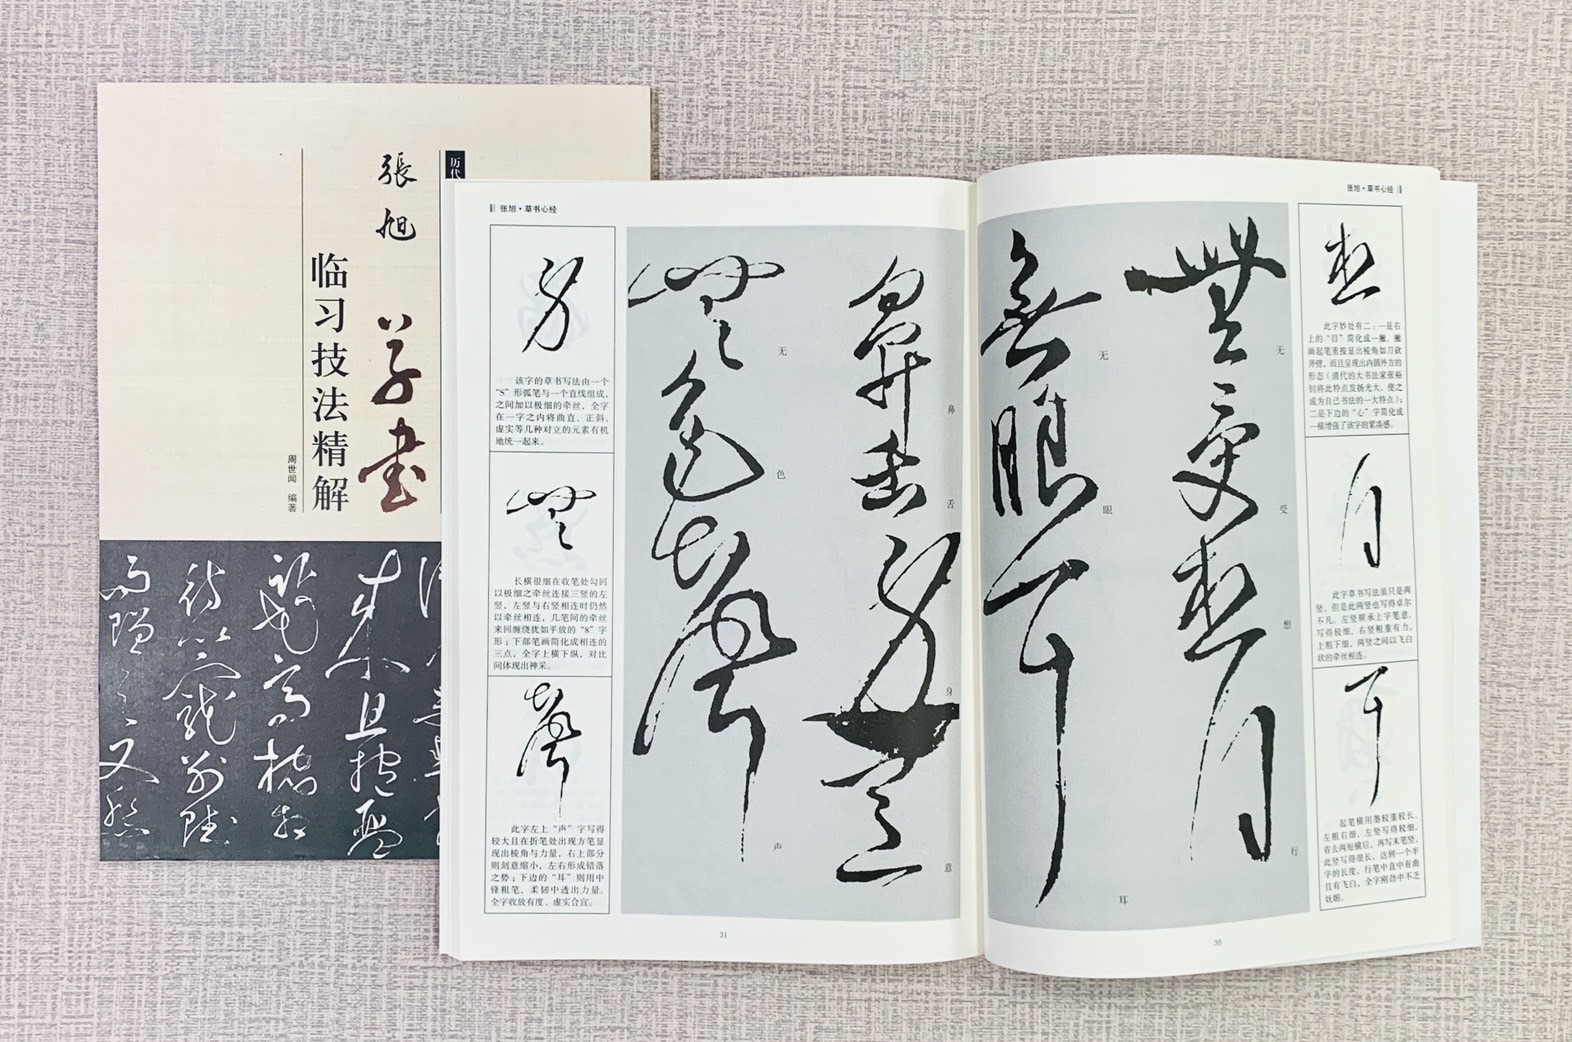 历代
張旭
草書
临习技法精解
周世闻 编著
张旭·草书心经
此字妙处有二:一是右
上的“目”简化成一撇,撇
画起笔重按显出棱角如刀砍
斧劈,而且呈现出内圆外方的
形态(清代的大书法家张裕
钊将此特点发扬光大,使之
成为自己书法的一大特点);
二是下边的“心”字简化成
一横增强了该字的紧凑感。
此字草书写法虽只是两
竖,但是此两竖也写得卓尔
不凡。左竖顺承上字笔意,
写得较细,右竖粗重有力,
上粗下细,两竖之间以飞白
状的牵丝相连。
起笔横用墨较重较长,
左粗右细,左竖写得较细,
省去两短横后,再写末笔竖,
此竖写得很长,达到一个半
字的长度,行笔中直中有曲
且有飞白,全字刚劲中不乏
妩媚。
無受想行
无
受
想
行
無眼耳
无
眼
耳
30
张旭·草书心经
鼻舌身意
鼻
舌
身
意
無色聲
无
色
声
该字的草书写法由一个
“S”形弧笔与一个直线组成,
之间加以极细的牵丝,全字
在一字之内将曲直、正斜、
虚实等几种对立的元素有机
地统一起来。
长横很细在收笔处勾回
以极细之牵丝连接三竖的左
竖,左竖与右竖相连时仍然
以牵丝相连,几笔间的牵丝
来回缠绕犹如平放的“8”字
形;下部笔画简化成相连的
三点,全字上横下纵,对比
间体现出神采。
此字左上“声”字写得
较大且在折笔处出现方笔显
现出棱角与力量,右上部分
则刻意缩小,左右形成错落
之势;下边的“耳”则用中
锋粗笔,柔韧中透出力量。
全字收放有度、虚实合宜。
31